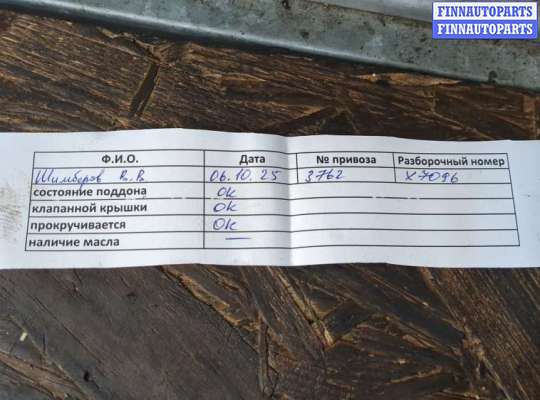 FINNAUTOPARTS
FINNAUTOPARTS
Ф.И.О. Дата № привоза Разборочный номер
06.10.25 3762 X7096
состояние поддона ОК
клапанной крышки ОК
прокручивается ОК
наличие масла —